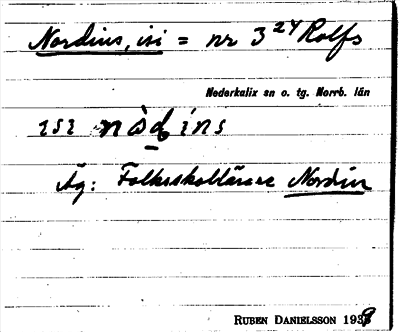 Nordins, isi = nr 3²⁴ Rolfs
Nederkalix sn o. tg. Norrb. län
ISI nòdins
Äg: Folkskollärare Nordin
RUBEN DANIELSSON 1939